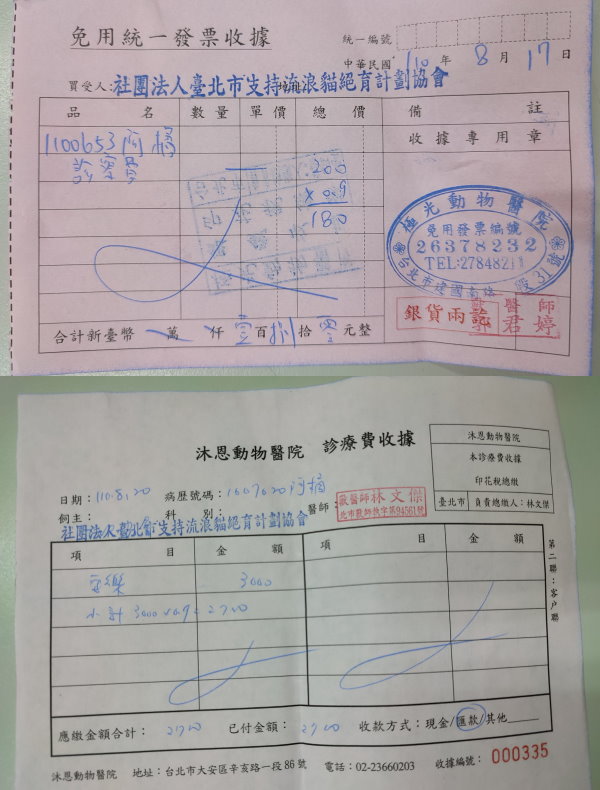 免用統一發票收據
統一編號
中華民國 110 年 8 月 17 日
買受人: 社團法人臺北市支持流浪貓絕育計劃協會
品名 數量 單價 總價 備註
收據專用章
1100653 阿橘
診察費 200
x 0.9
180
極光動物醫院
免用發票編號
26378232
TEL:2784821
台北市建國南路 段31號
銀貨兩訖
獸醫師
君婷
合計新臺幣 萬 仟 壹 百 捌 拾 零 元整
沐恩動物醫院 診療費收據
沐恩動物醫院
本診療費收據
印花稅總繳
臺北市 負責總繳人:林文傑
日期: 110.8.20 病歷號碼: 1607620 阿橘
飼主: 科別: 醫師:
獸醫師林文傑
北市獸師執字第94561號
社團法人臺北市支持流浪貓絕育計劃協會
項目 金額 項目 金額
安樂 3000
小計 3000x0.9=2700
第二聯:客戶聯
應繳金額合計: 2700 已付金額: 2700 收款方式:現金/匯款/其他
沐恩動物醫院 地址:台北市大安區辛亥路一段86號 電話:02-23660203 收據編號: 000335